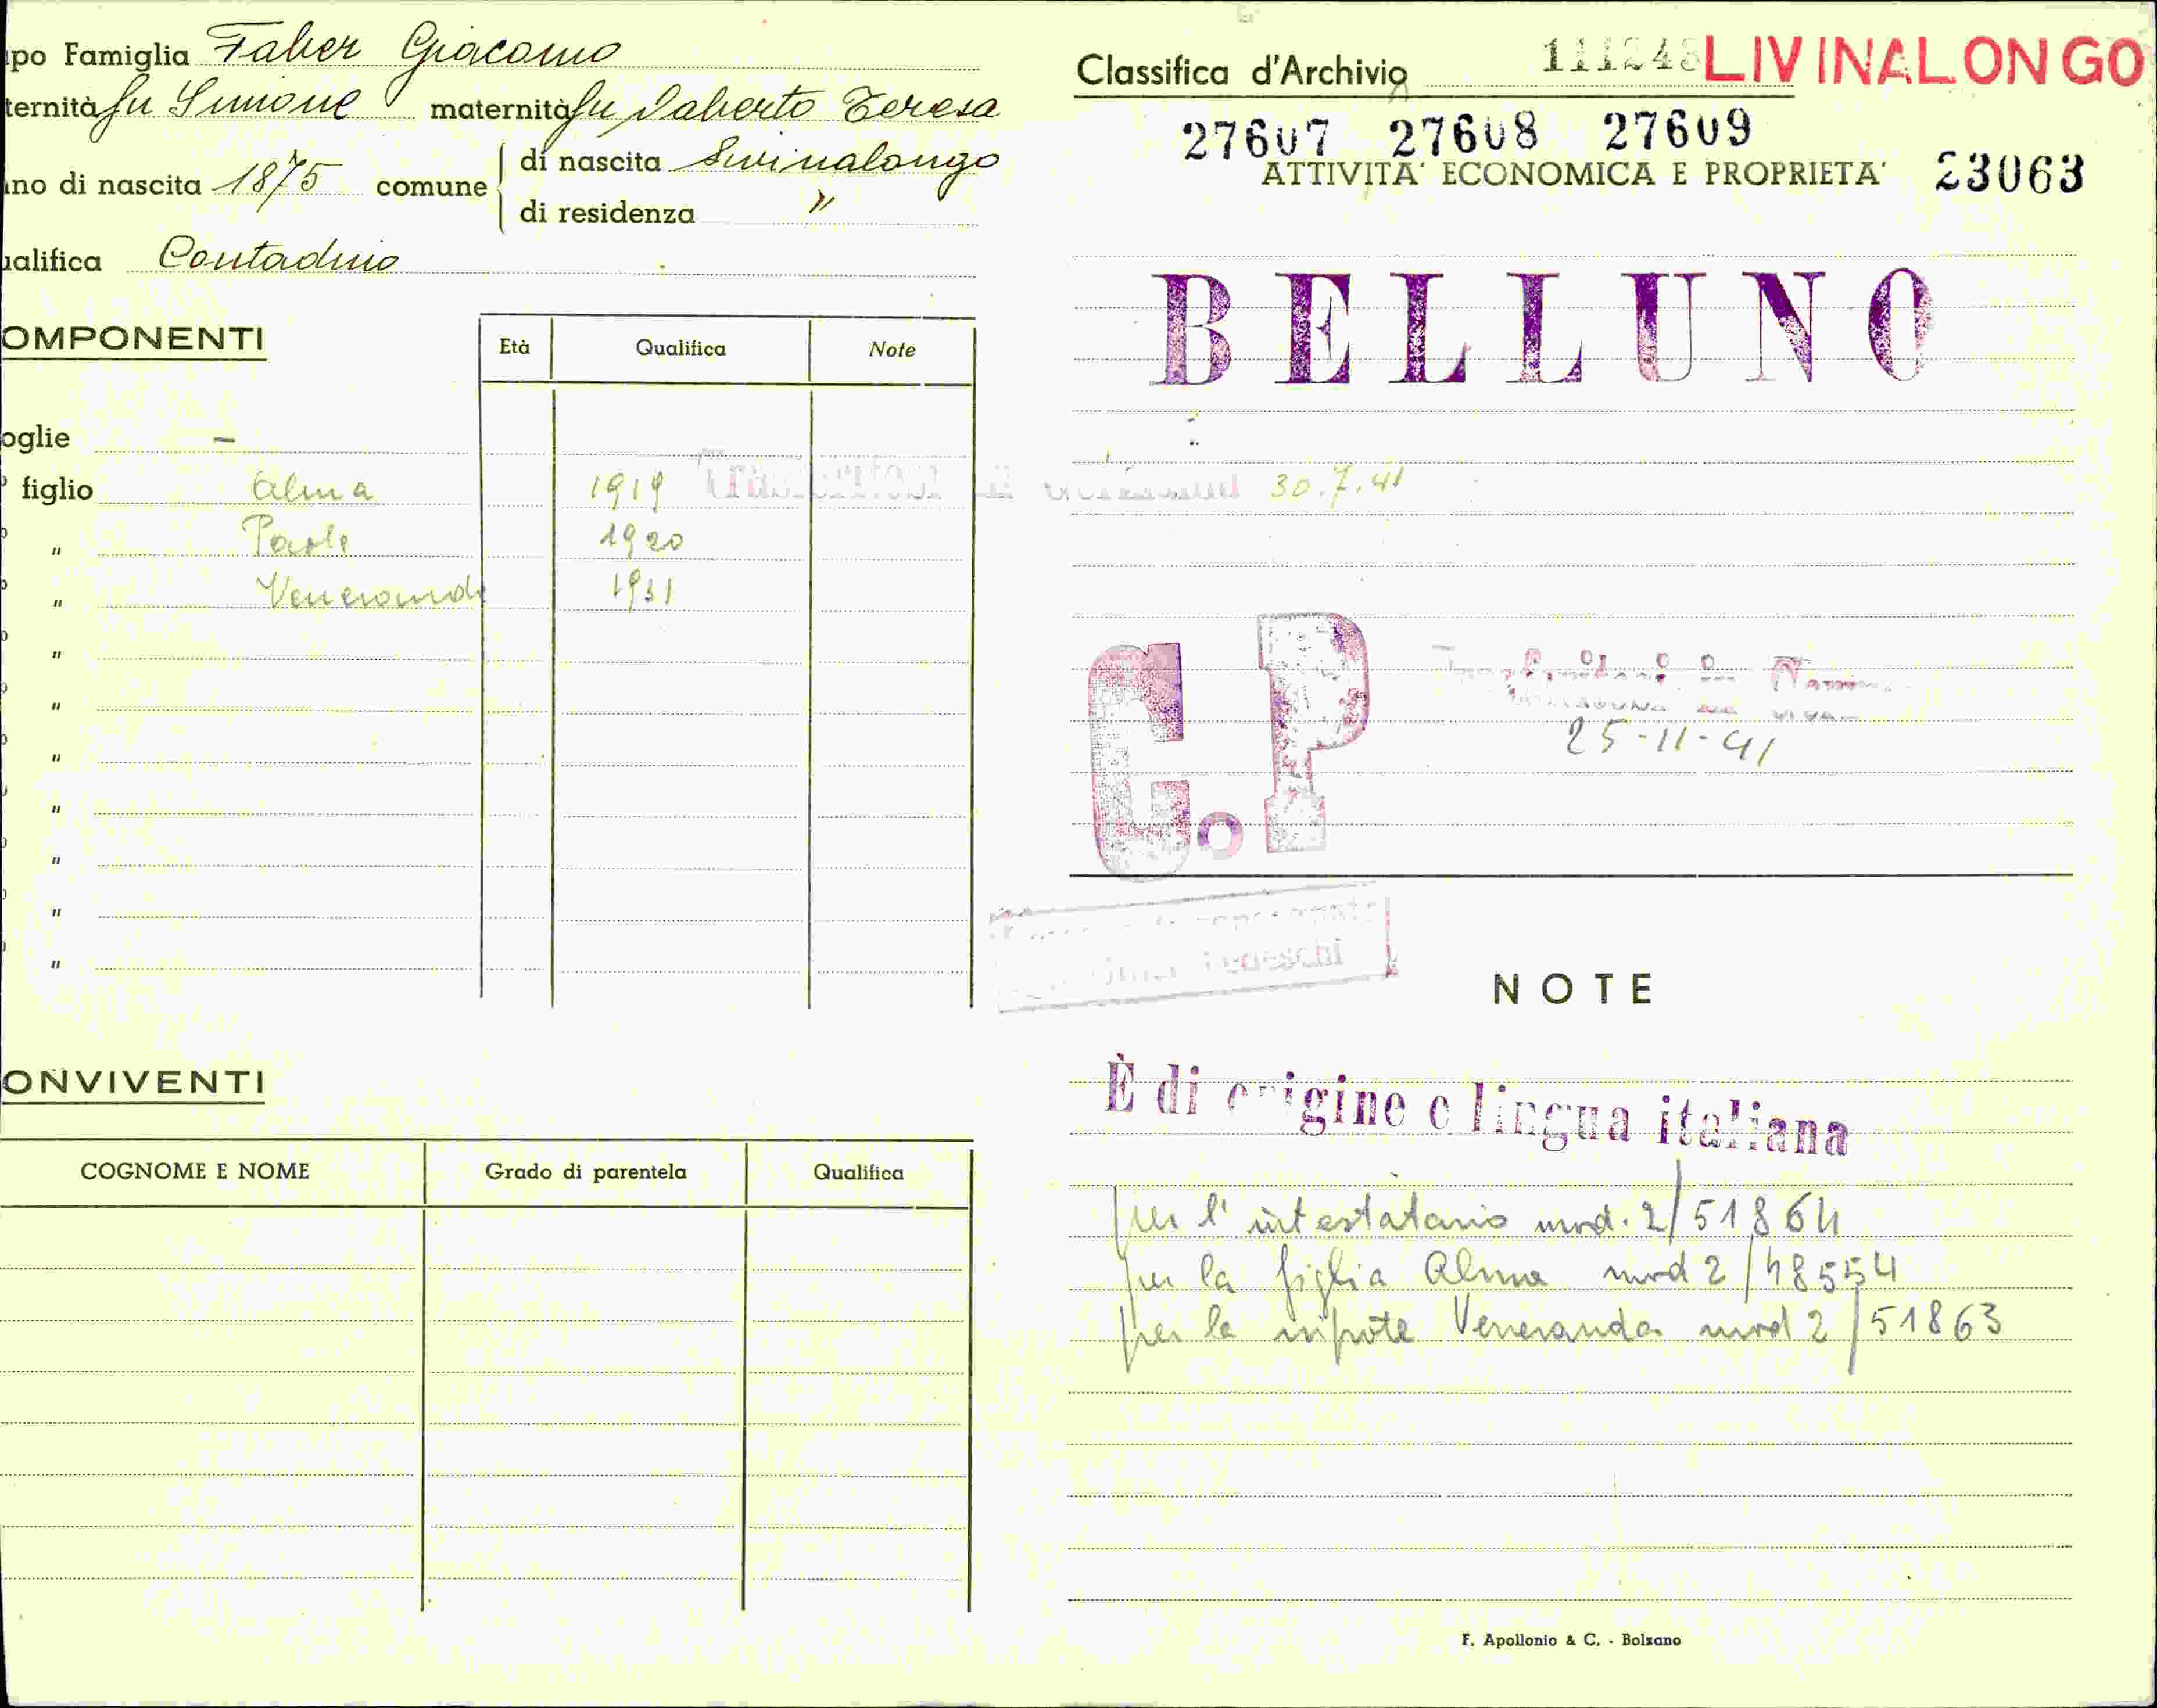 po Famiglia Faber Giacomo
ternità fu Simone maternità fu Daberto Teresa
no di nascita 1875 comune di nascita Livinalongo
di residenza "
alifica Contadino
OMPONENTI
Età Qualifica Note
oglie –
figlio Alma 1919
" Paola 1920
" Veneranda 1931
"
"
"
"
"
"
"
ONVIVENTI
COGNOME E NOME Grado di parentela Qualifica
Classifica d'Archivio 111243 LIVINALONGO
27607 27608 27609
ATTIVITA' ECONOMICA E PROPRIETA' 23063
BELLUNO
30.7.41
C.P
25-11-41
NOTE
È di origine e lingua italiana
per l'intestatario mod. 2/51864
per la figlia Alma mod 2/48554
per la nipote Veneranda mod 2/51863
F. Apollonio & C. - Bolzano